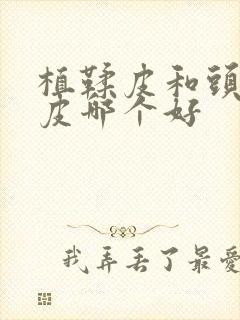 植鞣皮和頭
皮哪个好
我弄丢了最愛